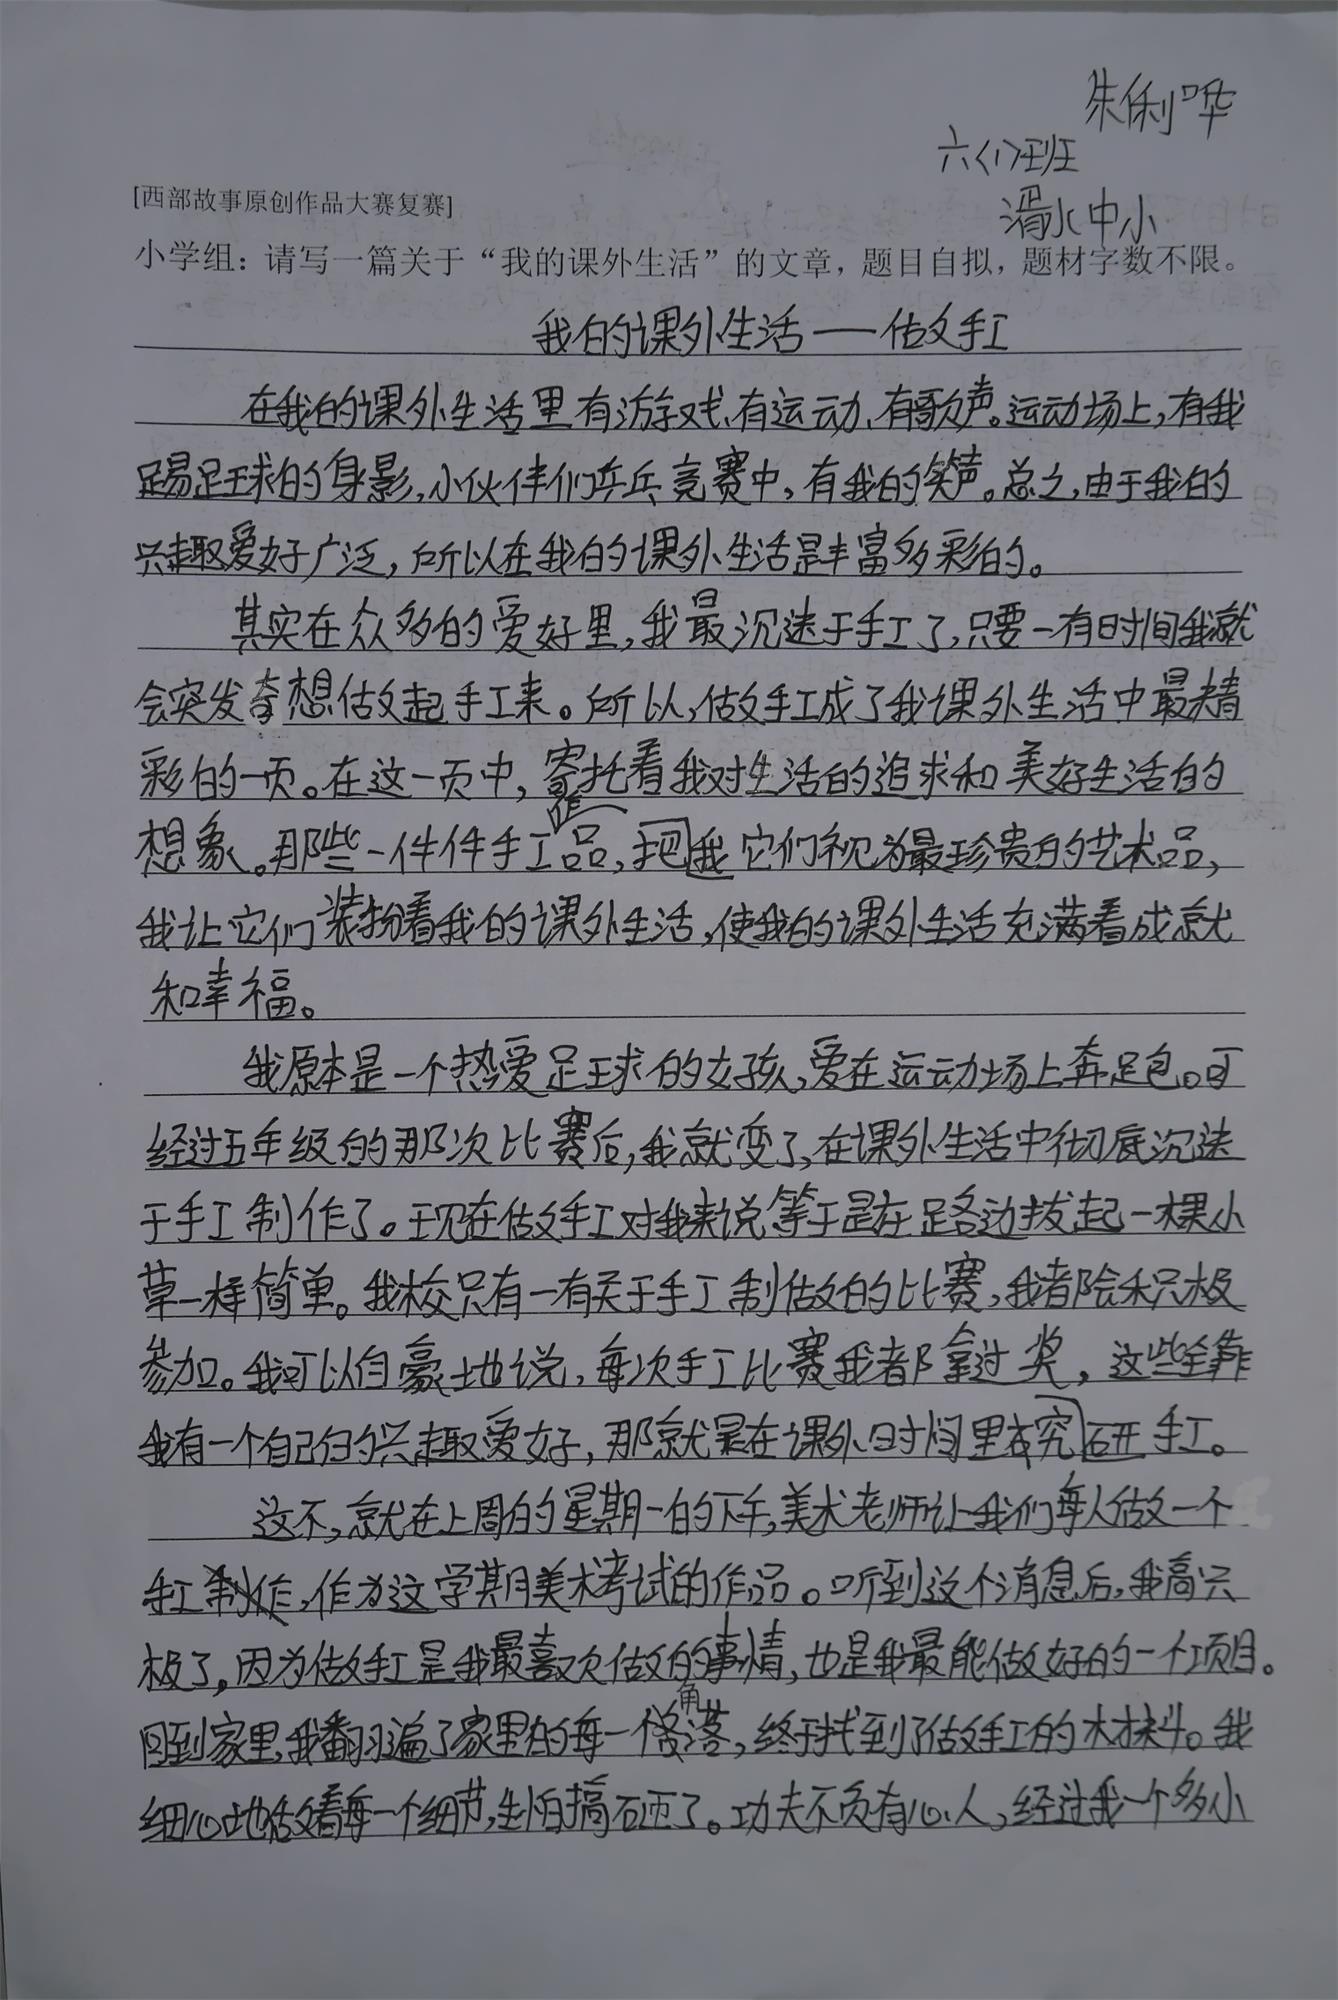 朱俐哗
六〈1〉班
湑水中小
[西部故事原创作品大赛复赛]
小学组：请写一篇关于“我的课外生活”的文章，题目自拟，题材字数不限。
我的课外生活——做手工
在我的课外生活里有游戏、有运动、有歌声。运动场上，有我
踢足球的身影，小伙伴们乒乓竞赛中，有我的笑声。总之，由于我的
兴趣爱好广泛，所以在我的课外生活是丰富多彩的。
其实在众多的爱好里，我最沉迷于手工了，只要一有时间我就
会突发奇想做起手工来。所以，做手工成了我课外生活中最精
彩的一页。在这一页中，寄托着我对生活的追求和美好生活的
想象。那些一件件手工作品，把我它们视为最珍贵的艺术品，
我让它们装扮着我的课外生活，使我的课外生活充满着成就
和幸福。
我原本是一个热爱足球的女孩，爱在运动场上奔跑。可
经过五年级的那次比赛后，我就变了，在课外生活中彻底沉迷
于手工制作了。现在做手工对我来说等于是在路边拔起一棵小
草一样简单。我校只有一有关于手工制做的比赛，我都会积极
参加。我可以自豪地说，每次手工比赛我都拿过奖，这些全靠
我有一个自己的兴趣爱好，那就是在课外时间里究研手工。
这不，就在上周的星期一的下午，美术老师让我们每人做一个
手工，作为这学期美术考试的作品。听到这个消息后，我高兴
极了，因为做手工是我最喜欢做的事情，也是我最能做好的一个项目。
回到家里，我翻遍了家里的每一个角落，终于找到了做手工的材料。我
细心地做着每一个细节，生怕搞砸了。功夫不负有心人，经过我一个多小